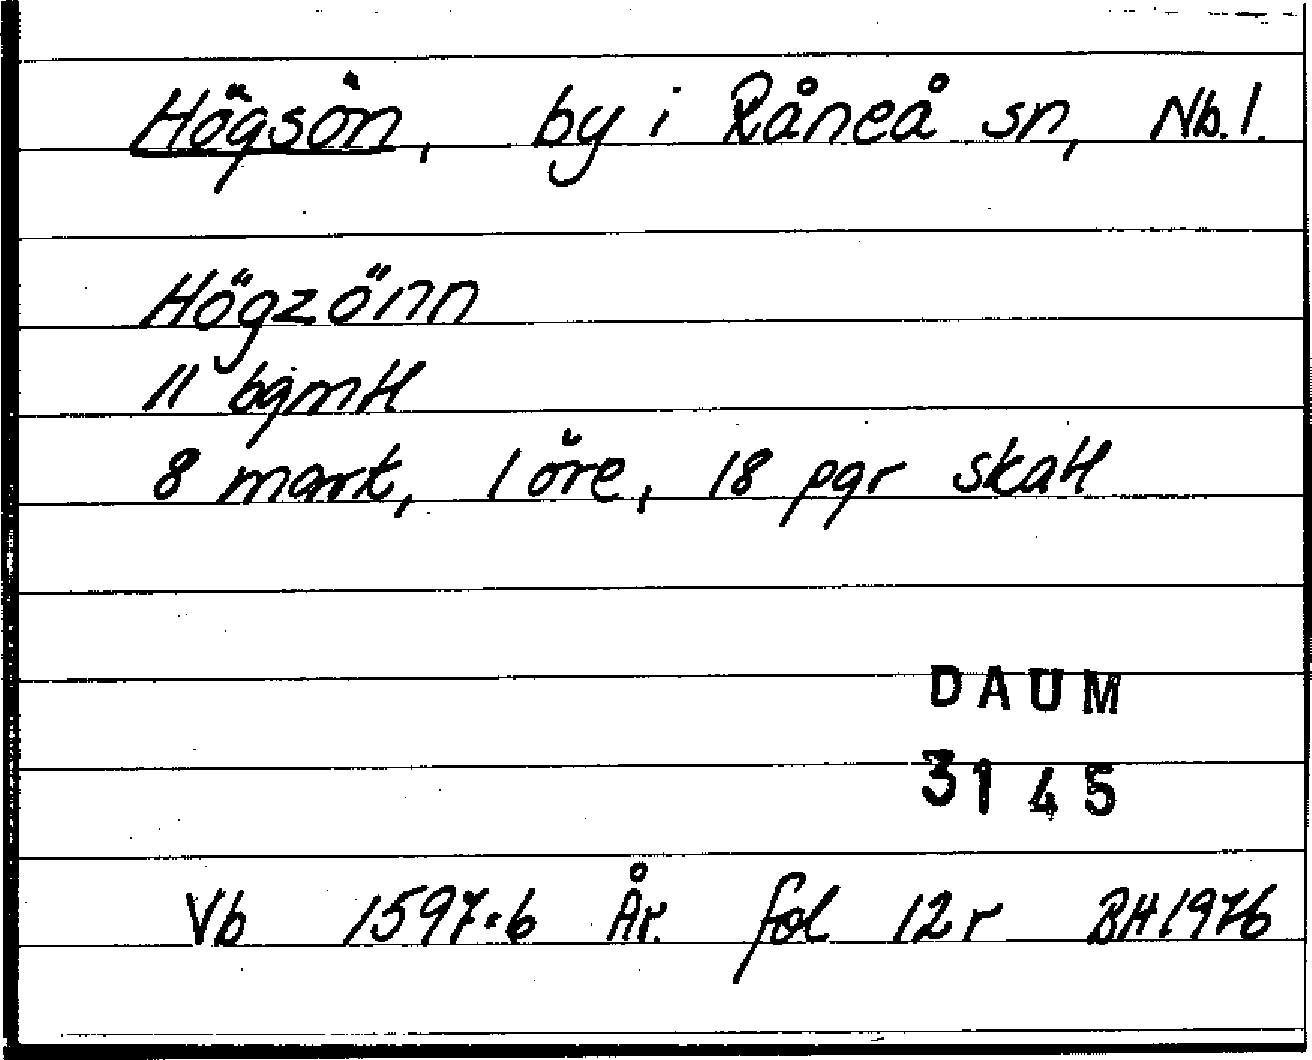 Högsön, by i Råneå sn, Nb. l.
Högzönn
11 bgmtl
8 mark, 1 öre, 18 pgr skatt
DAUM
3145
Vb 1597:6 År. fol 12 r BH 1976